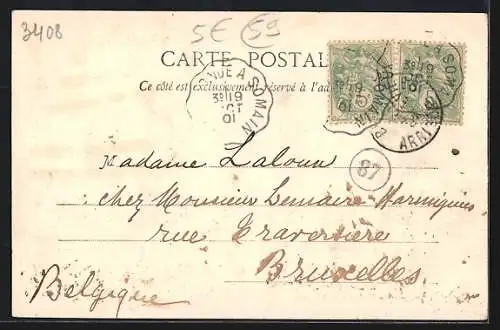 3408
5E 5a
CARTE POSTALE
Ce côté est exclusivement réservé à l'ad
A SOMAIN
3E 19
OCT
01
SOMAIN
ARRI
87
Madame Laloux
chez Monsieur Lemaire-Harmignies
rue Traversière
Bruxelles
Belgique